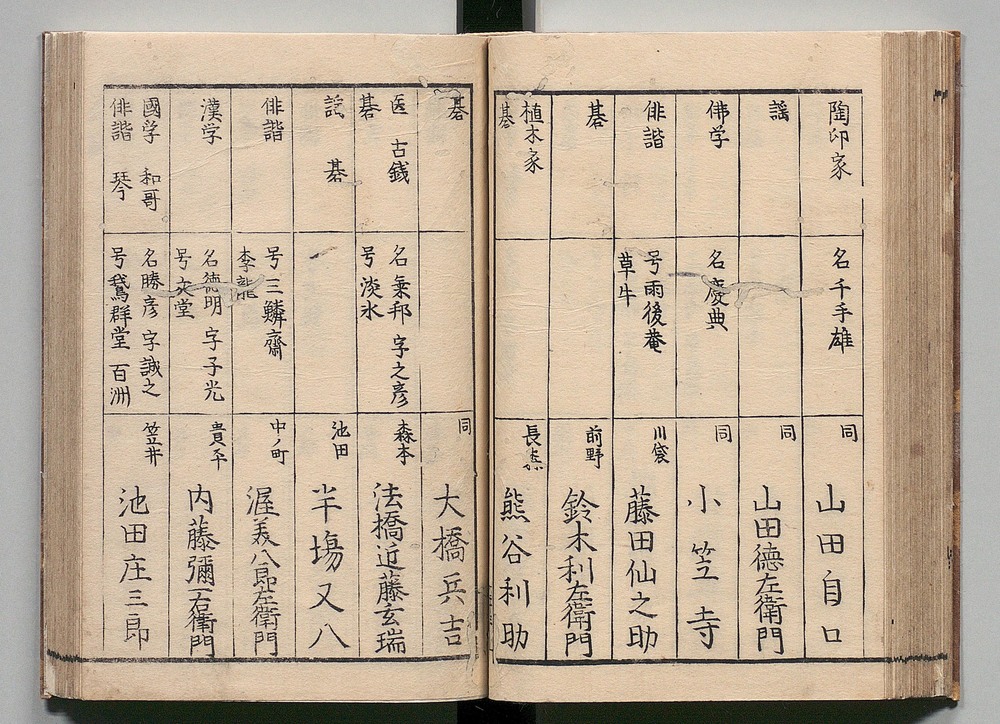 陶印家
名千手雄
同
山田自口
謡
同
山田徳左衛門
佛学
名慶典
同
小笠寺
俳諧
号雨後菴
草牛
川袋
藤田仙之助
碁
前野
鈴木利左衛門
植木家
碁
長
熊谷利助
碁
同
大橋兵吉
医 古銭
碁
名兼邦 字之彦
号淡水
森本
法橋近藤玄瑞
謡 碁
池田
半塲又八
俳諧
号三鱗齋
李龍
中ノ町
渥美八郎左衛門
漢学
名徳明 字子光
号文堂
貴平
内藤彌一右衛門
國学 和哥
俳諧 琴
名勝彦 字誠之
号鵞群堂 百洲
笠井
池田庄三郎